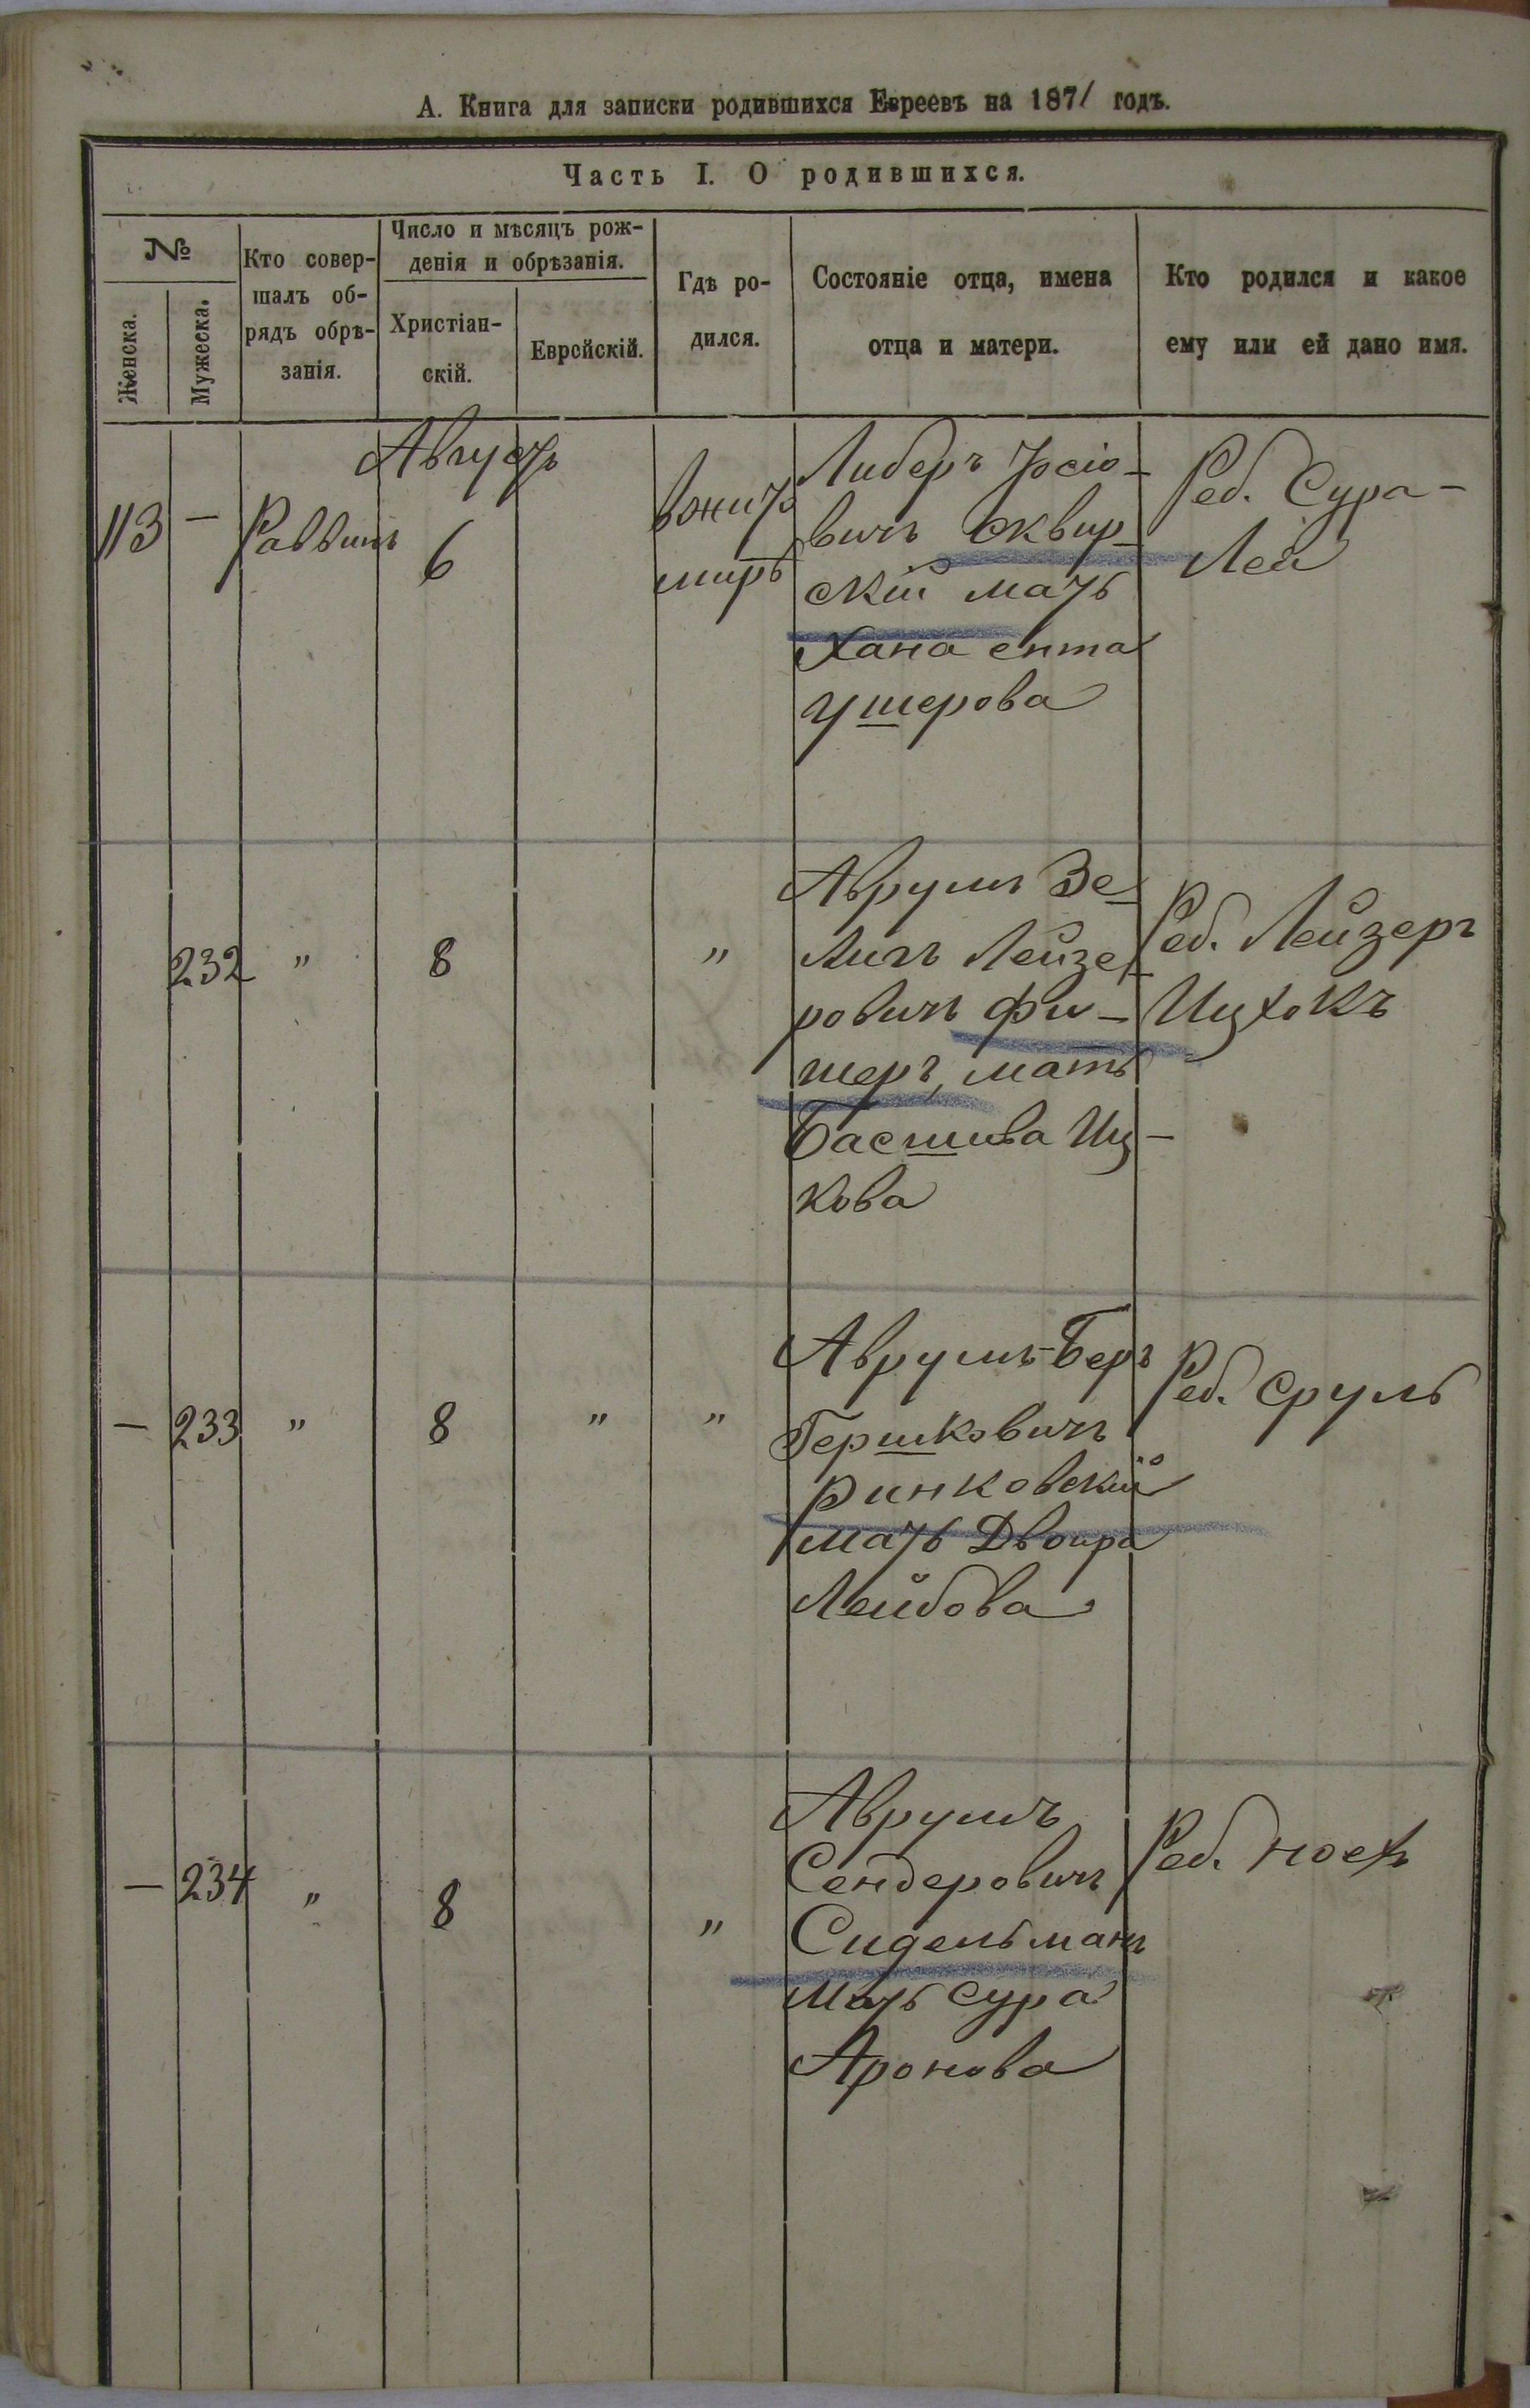 А. Книга для записки родившихся Евреевъ на 1871 годъ.
Часть I. О родившихся.
№
Женска.
Мужеска.
Кто совер-
шалъ об-
рядъ обрѣ-
занія.
Число и мѣсяцъ рож-
денія и обрѣзанія.
Христіан-
скій.
Еврейскій.
Гдѣ ро-
дился.
Состояніе отца, имена
отца и матери.
Кто родился и какое
ему или ей дано имя.
Августъ
113 — Раввинъ 6
миръ
Либеръ Іосіо-
вичъ Сквир-
скій мать
Хана ента
Ушерова
Реб. Сура-
Лея
232 " 8 "
Аврумъ Зе-
личъ Лейзе-
ровичъ Фи-
шеръ, мать
Басшива Иц-
кова
Реб. Лейзеръ
Ицхокъ
— 233 " 8 " "
Аврумъ-Беръ
Гершковичъ
Ринковскій
мать Двойра
Лейбова
Реб. Сруль
— 234 " 8 "
Аврумъ
Сендеровичъ
Сидельманъ
мать Сура
Аронова
Реб. Ноехъ